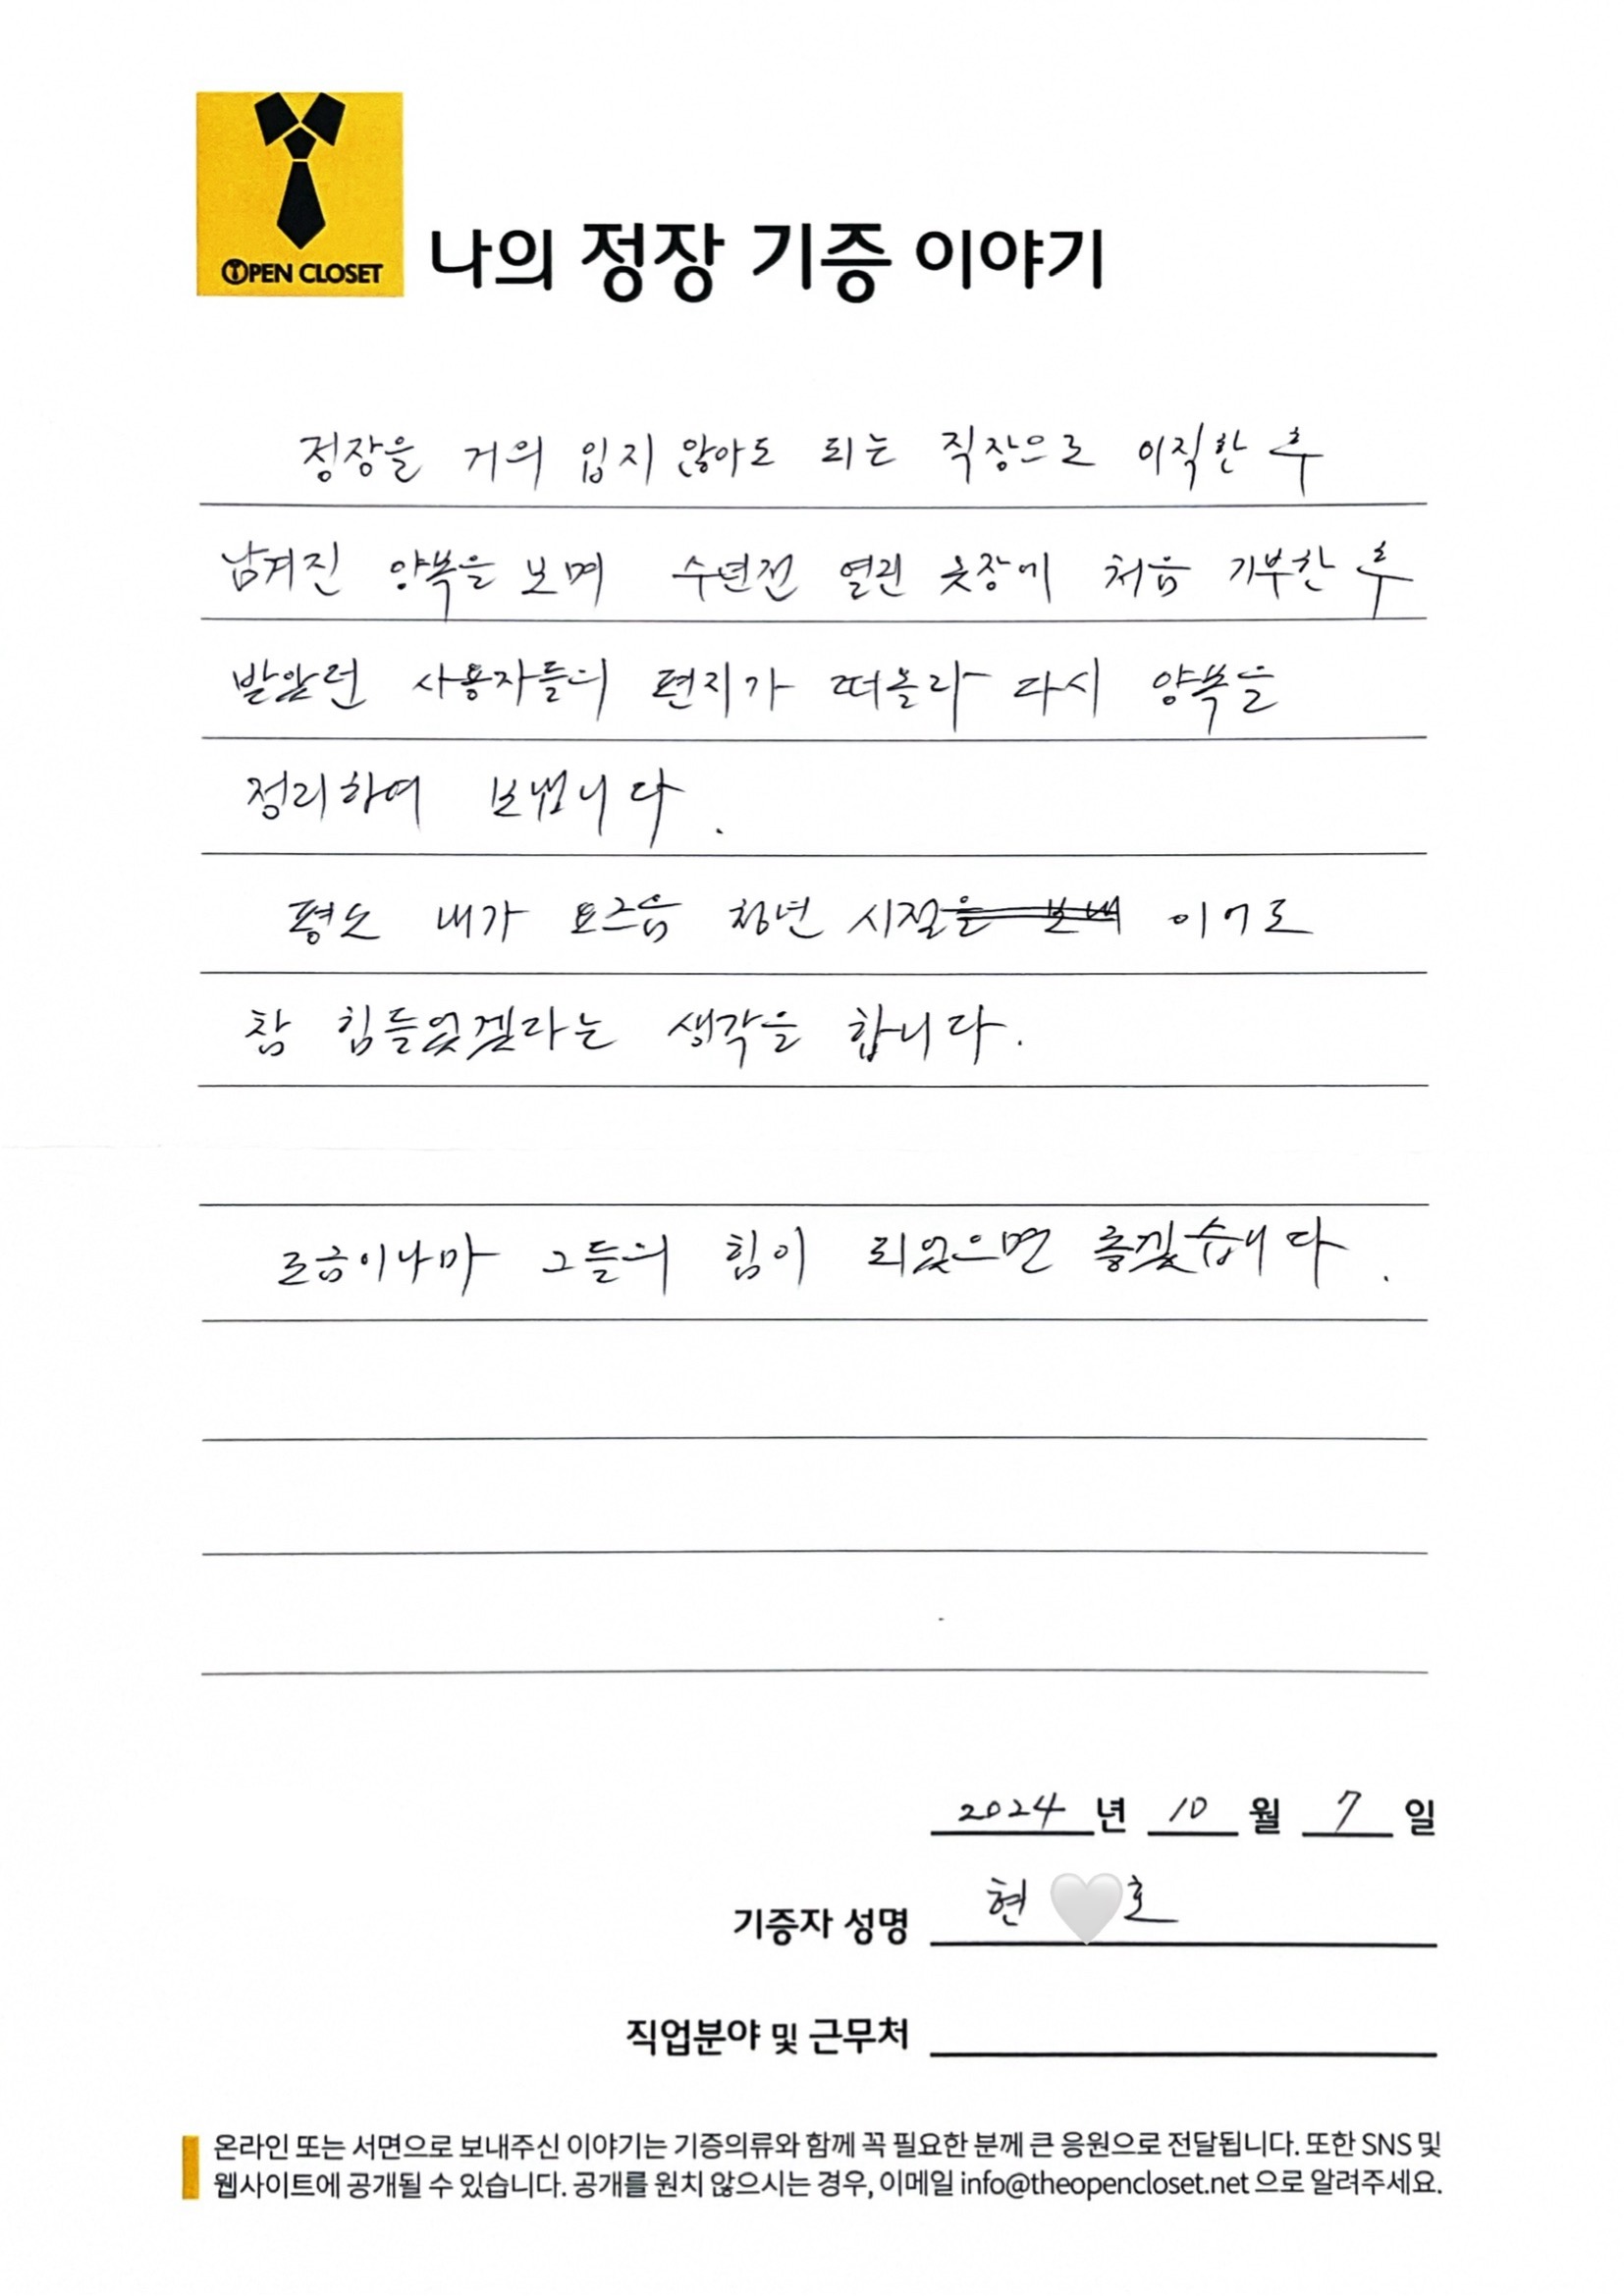 OPEN CLOSET
나의 정장 기증 이야기
정장을 거의 입지 않아도 되는 직장으로 이직한 후
남겨진 양복을 보며 수년전 열린 옷장에 처음 기부한 후
받았던 사용자들의 편지가 떠올라 다시 양복을
정리하여 보냅니다.
평소 내가 요즈음 청년 시절을 보내 이어도
참 힘들었겠라는 생각을 합니다.
조금이나마 그들의 힘이 되었으면 좋겠습니다.
2024 년 10 월 7 일
기증자 성명 현 🤍호
직업분야 및 근무처
온라인 또는 서면으로 보내주신 이야기는 기증의류와 함께 꼭 필요한 분께 큰 응원으로 전달됩니다. 또한 SNS 및
웹사이트에 공개될 수 있습니다. 공개를 원치 않으시는 경우, 이메일 info@theopencloset.net 으로 알려주세요.